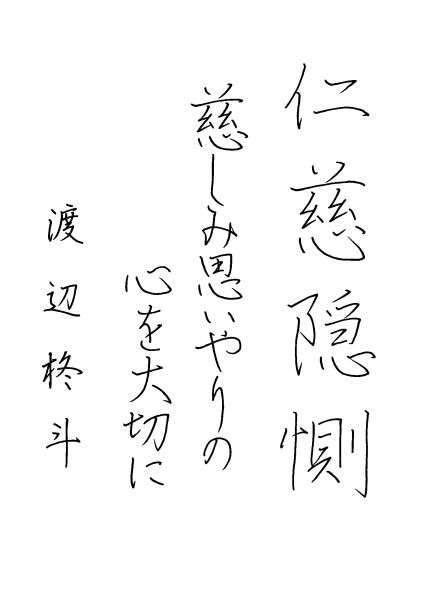 仁慈隠惻
慈しみ思いやりの
心を大切に
渡辺柊斗